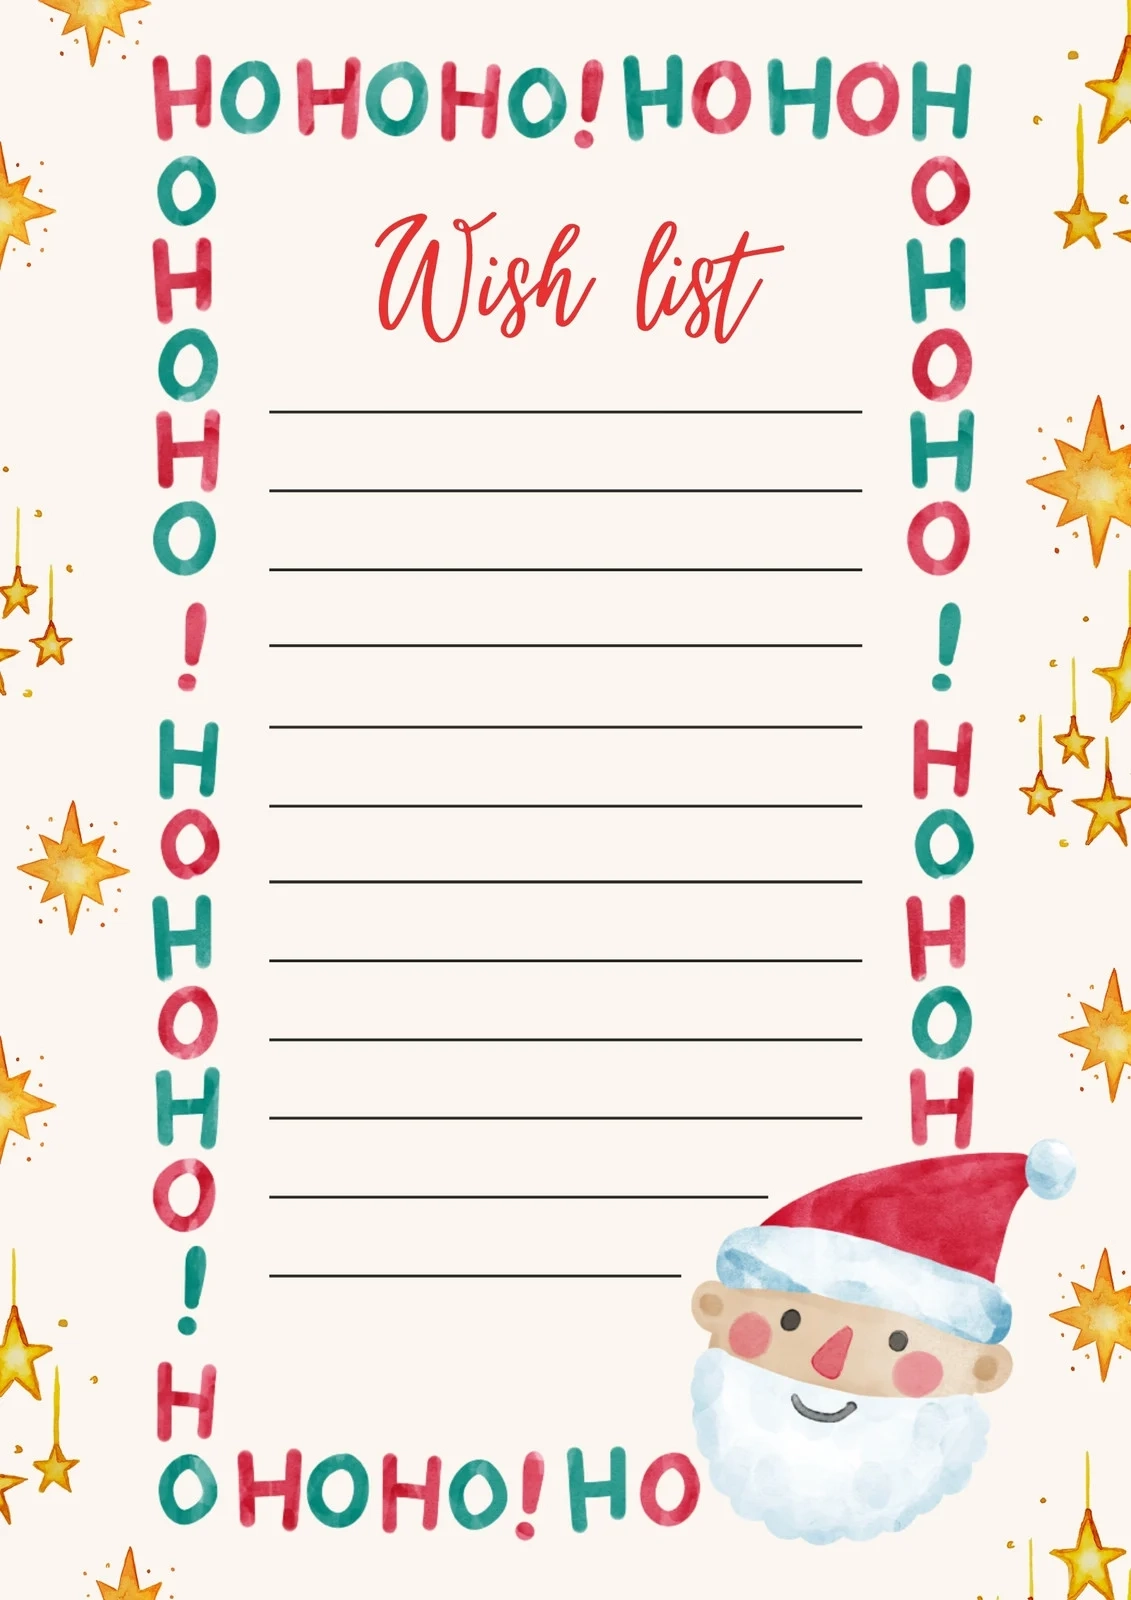 HOHOHO!HOHOH
Wish list
OHOHO!HOHOHO!H
OHOHO!HOHOH
OHOHO!HO